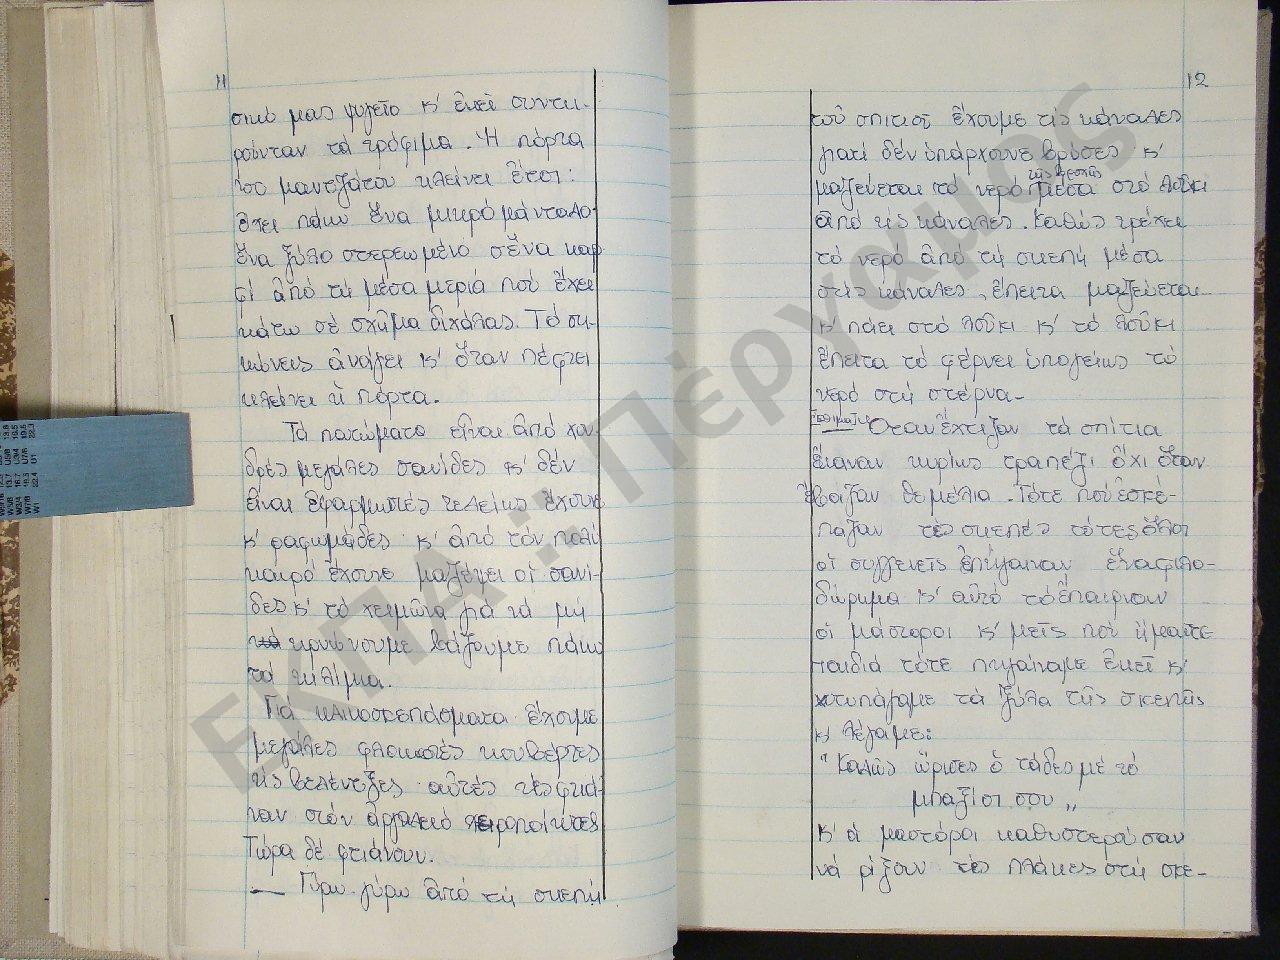 11
σικό μας ψυγεῖο κ' ἐκεῖ συντη-
ροῦνταν τά τρόφιμα. Ἡ πόρτα
τοῦ μαντζάτου κλείνει ἔτσι:
ἔχει πάνω ἕνα μικρό μάνταλο·
ἕνα ξύλο στερεωμένο σἕνα καρ
φί ἀπό τή μέσα μεριά πού ἔχει
κάτω σέ σχῆμα διχάλας. Τό ση-
κώνεις ἀνοίγει κ' ὅταν πέφτει
κλείνει ἡ πόρτα.
Τά πατώματα εἶναι ἀπό χον
δρές μεγάλες σανίδες κ' δέν
εἶναι ἐφαρμιστές τελείως ἔχουνε
κ' ραφωμάδες κ' ἀπό τόν πολύ
καιρό ἔχουνε μαζέψει οἱ σανί-
δες κ' τό χειμῶνα γιά νά μή
κρυώνουμε βάζουμε πάνω
τά κιλίμια.
Γιά κλινοσκεπάσματα ἔχουμε
μεγάλες φλοκωτές κουβέρτες
τίς βελέντζες αὐτές τίς φτιά-
ναν στόν ἀργαλειό χειροποίητες
Τώρα δέ φτιάνουν.
— Γύρω γύρω ἀπό τή σκεπή
12
τοῦ σπιτιοῦ ἔχουμε τίς κάναλες
γιατί δέν ὑπάρχουνε βρύσες κ'
μαζεύεται τό νερό τῆς βροχῆς μέσα στό λοῦκι
ἀπό τίς κάναλες. Καθώς τρέχει
τό νερό ἀπό τή σκεπή μέσα
στίς κάναλες, ἔπειτα μαζεύεται
κ' πάει στό λοῦκι κ' τό λοῦκι
ἔπειτα τό φέρνει ὑπογείως τό
νερό στή στέρνα-
Ὅταν ἔχτιζαν τά σπίτια
ἔκαναν κυρίως τραπέζι ὄχι ὅταν
ἔβαζαν θεμέλια. Τότε πού ἐσκέ-
παζαν τίς σκεπές τότες ὅλοι
οἱ συγγενεῖς ἐπήγαιναν ἕνα φιλο-
δώρημα κ' αὐτό τό ἔπαιρναν
οἱ μάστοροι κ' μεῖς πού ἤμαστε
παιδιά τότε πηγαίναμε ἐκεῖ κ'
χτυπάγαμε τά ξύλα τῆς σκεπῆς
κ' λέγαμε:
"Καλῶς ὥρισες ὁ τάδες μέ τό
μπαξίσι σου„
κ' ἁ μαστόροι καθυστεροῦσαν
νά ρίξουν τίς πλάκες στή σκε-
ΕΚΠΑ :: Πέργαμος